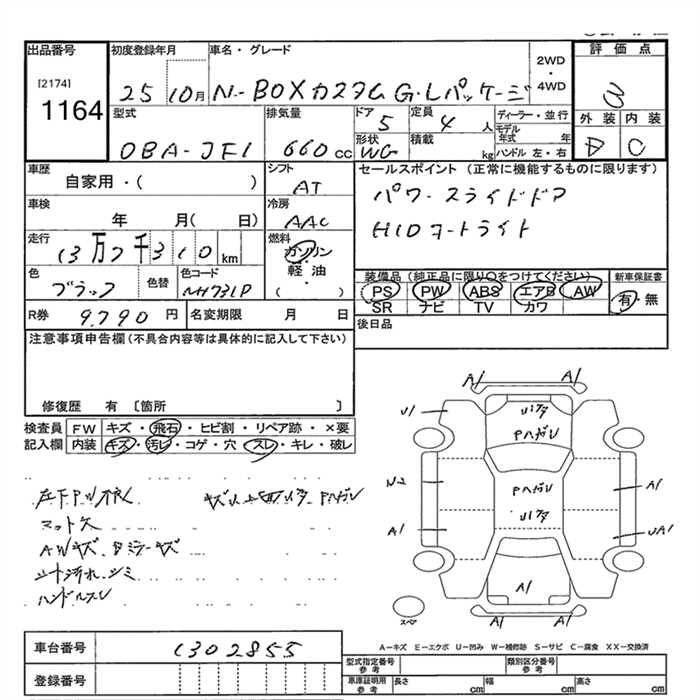 出品番号 初度登録年月 車名・グレード 2WD・4WD 評価点
[2174] 1164 25 10月 N-BOXカスタム G・Lパッケージ 3
型式 排気量 ドア 定員 ディーラー・並行 外装 内装
DBA-JF1 660cc 5 4人 モデル年式 年 D C
形状 WG 積載 kg ハンドル 左・右
車歴 シフト セールスポイント (正常に機能するものに限ります)
自家用・( ) AT パワースライドドア
車検 冷房 HIDオートライト
年 月( 日) AAC
走行 13万2千310km 燃料 ガソリン・軽油・( )
装備品(純正品に限り○をつけてください) 新車保証書
色 ブラック 色替 色コード NH731P PS PW ABS エアB AW 有・無
SR ナビ TV カワ
R券 9,790円 名変期限 月 日 後日品
注意事項申告欄(不具合内容等は具体的に記入して下さい)
修復歴 有 〔箇所 〕
検査員記入欄 FW キズ・飛石・ヒビ割・リペア跡・×要
内装 キズ・汚レ・コゲ・穴・スレ・キレ・破レ
マット欠
AWキズ
シート汚れ、シミ
ハンドルスレ
A1 A1
U1
Pハガレ
N-2
Pハガレ A1
A1 UA1
A1
A1 A1
スペア
A-キズ E-エクボ U-凹み W-補修跡 S-サビ C-腐食 XX-交換済
車台番号 1302855
登録番号
型式指定番号 参考 類別区分番号 参考
車庫証明用 参考 長さ cm 幅 cm 高さ cm